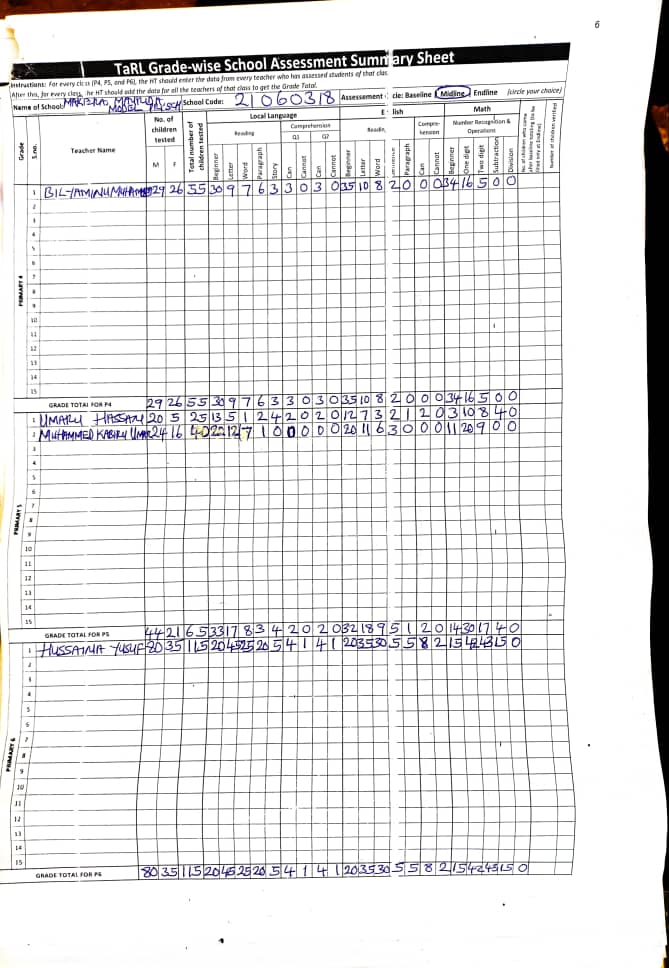 6
TaRL Grade-wise School Assessment Summary Sheet
Instructions: For every class (P4, P5, and P6), the HT should enter the data from every teacher who has assessed students of that clas
After this, for every class, he HT should add the data for all the teachers of that class to get the Grade Total.
Name of School: School Code: 21060318 Assessment cle: Baseline Midline Endline (circle your choice)
Grade
S.no.
Teacher Name
No. of children tested
M F
Total number of children tested
Local Language
Reading
Beginner Letter Word Paragraph Story
Comprehension
Q1 Q2
Can Cannot Can Cannot
E lish
Readin
Beginner Letter Word Paragraph
Compre-hension
Can Cannot
Math
Number Recognition & Operations
Beginner One digit Two digit Subtraction Division
Number of children verified
PRIMARY 4
1 29 26 55 30 9 7 6 3 3 0 3 0 35 10 8 2 0 0 0 34 16 5 0 0
2
3
4
5
6
7
8
9
10
11
12
13
14
15
GRADE TOTAL FOR P4 29 26 55 30 9 7 6 3 3 0 3 0 35 10 8 2 0 0 0 34 16 5 0 0
PRIMARY 5
1 UMARU HASSAN 20 5 25 13 5 1 2 4 2 0 2 0 12 7 3 2 1 2 0 3 10 8 4 0
2 MUHAMMED KABIRU UMAR 24 16 40 22 12 7 1 0 0 0 0 0 20 11 6 3 0 0 0 11 20 9 0 0
3
4
5
6
7
8
9
10
11
12
13
14
15
GRADE TOTAL FOR P5 44 21 65 33 17 8 3 4 2 0 2 0 32 18 9 5 1 2 0 14 30 17 4 0
PRIMARY 6
1 HUSSAINA YUSUF 80 35 115 20 45 25 20 5 4 1 4 1 20 35 30 5 5 8 2 15 42 43 15 0
2
3
4
5
6
7
8
9
10
11
12
13
14
15
GRADE TOTAL FOR P6 80 35 115 20 45 25 20 5 4 1 4 1 20 35 30 5 5 8 2 15 42 43 15 0